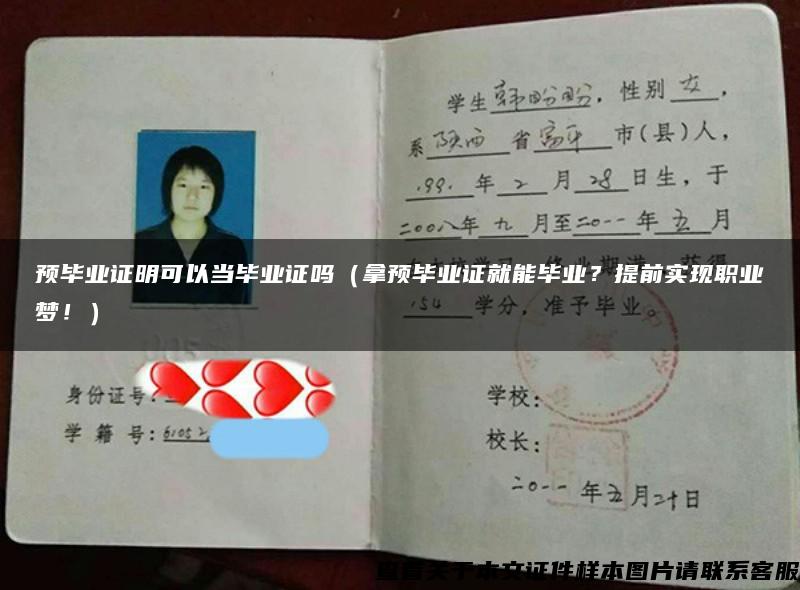 学生韩盼盼，性别女，
系陕西省富平市(县)人，
1991年2月28日生，于
二00八年九月至二0一一年五月
预毕业证明可以当毕业证吗（拿预毕业证就能毕业？提前实现职业
梦！）
154学分，准予毕业。
身份证号：
学籍号：61052
学校：
校长：
二0一一年五月二十日
查看关于本文证件样本图片请联系客服